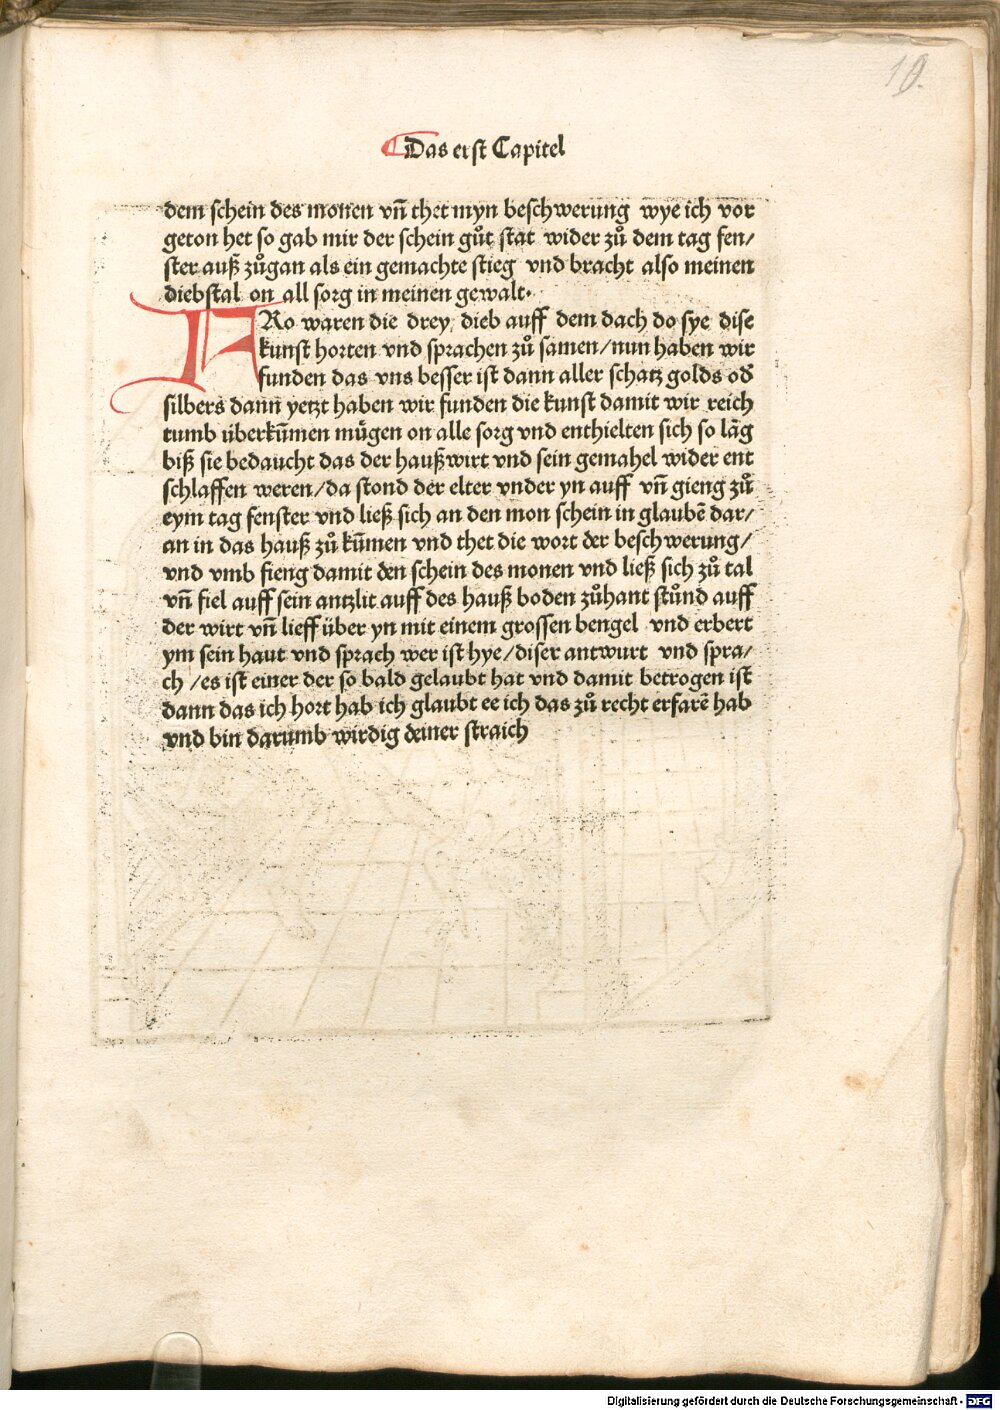 19.
Das erst Capitel
dem schein des monen vn̄ thet myn beschwerung wye ich vor
geton het so gab mir der schein gůt stat wider zů dem tag fen/
ster auß zůgan als ein gemachte stieg vnd bracht also meinen
diebstal on all sorg in meinen gewalt·
NRo waren die drey dieb auff dem dach do sye dise
kunst horten vnd sprachen zů samen/nun haben wir
funden das vns besser ist dann aller schatz golds od̄
silbers dann yetzt haben wir funden die kunst damit wir reich
tumb überkūmen mügen on alle sorg vnd enthielten sich so lāg
biß sie bedaucht das der haußwirt vnd sein gemahel wider ent
schlaffen weren/da stond der elter vnder yn auff vn̄ gieng zů
eym tag fenster vnd ließ sich an den mon schein in glaubē dar/
an in das hauß zů kūmen vnd thet die wort der beschwerung/
vnd vmb fieng damit den schein des monen vnd ließ sich zů tal
vn̄ fiel auff sein antzlit auff des hauß boden zůhant stůnd auff
der wirt vn̄ lieff über yn mit einem grossen bengel vnd erbert
ym sein haut vnd sprach wer ist hye/diser antwurt vnd spra/
ch /es ist einer der so bald gelaubt hat vnd damit betrogen ist
dann das ich hort hab ich glaubt ee ich das zů recht erfarē hab
vnd bin darumb wirdig deiner straich
Digitalisierung gefördert durch die Deutsche Forschungsgemeinschaft - DFG